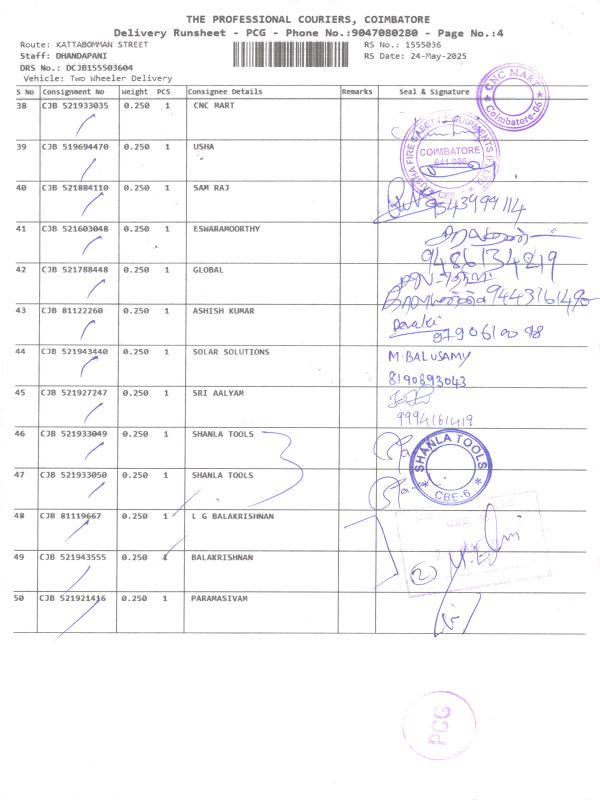 THE PROFESSIONAL COURIERS, COIMBATORE
Delivery Runsheet - PCG - Phone No.:9047080280 - Page No.:4
Route: KATTABOMMAN STREET RS No.: 1555036
Staff: DHANDAPANI RS Date: 24-May-2025
DRS No.: DCJB155503604
Vehicle: Two Wheeler Delivery
S No Consignment No Weight PCS Consignee Details Remarks Seal & Signature
38 CJB 521933035 0.250 1 CNC MART CNC MART Coimbatore-06
39 CJB 519694470 0.250 1 USHA USHA FIRE SAFETY EQUIPMENTS (P) LTD COIMBATORE 641 006
40 CJB 521884110 0.250 1 SAM RAJ 9543999114
41 CJB 521603048 0.250 1 ESWARAMOORTHY 9486134219
42 CJB 521788448 0.250 1 GLOBAL 9443761490
43 CJB 81122260 0.250 1 ASHISH KUMAR Devaki
44 CJB 521943440 0.250 1 SOLAR SOLUTIONS M. BALUSAMY
8190893043
45 CJB 521927247 0.250 1 SRI AALYAM
9994161419
46 CJB 521933049 0.250 1 SHANLA TOOLS
47 CJB 521933050 0.250 1 SHANLA TOOLS SHANLA TOOLS CBE-6
48 CJB 81119667 0.250 1 L G BALAKRISHNAN
49 CJB 521943555 0.250 1 BALAKRISHNAN 2
50 CJB 521921416 0.250 1 PARAMASIVAM
PCG